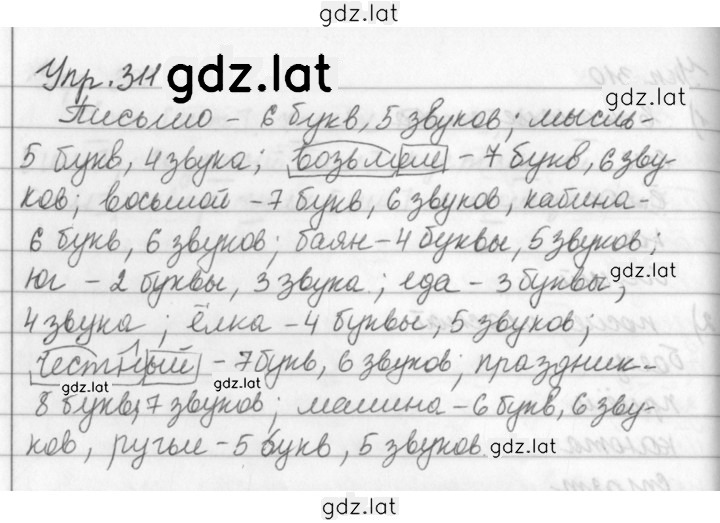 gdz.lat
Упр. 311 gdz.lat
Письмо - 6 букв, 5 звуков; мысль-
5 букв, 4 звука; возьмем - 7 букв, 6 зву-
ков; восьмой - 7 букв, 6 звуков, кабина-
6 букв, 6 звуков; баян - 4 буквы, 5 звуков;
юг - 2 буквы, 3 звука; еда - 3 буквы, gdz.lat
4 звука; ёлка - 4 буквы, 5 звуков;
честный - 7 букв, 6 звуков; праздник-
gdz.lat gdz.lat
8 букв, 7 звуков; машина - 6 букв, 6 зву-
ков, ручьи - 5 букв, 5 звуков gdz.lat
gdz.lat